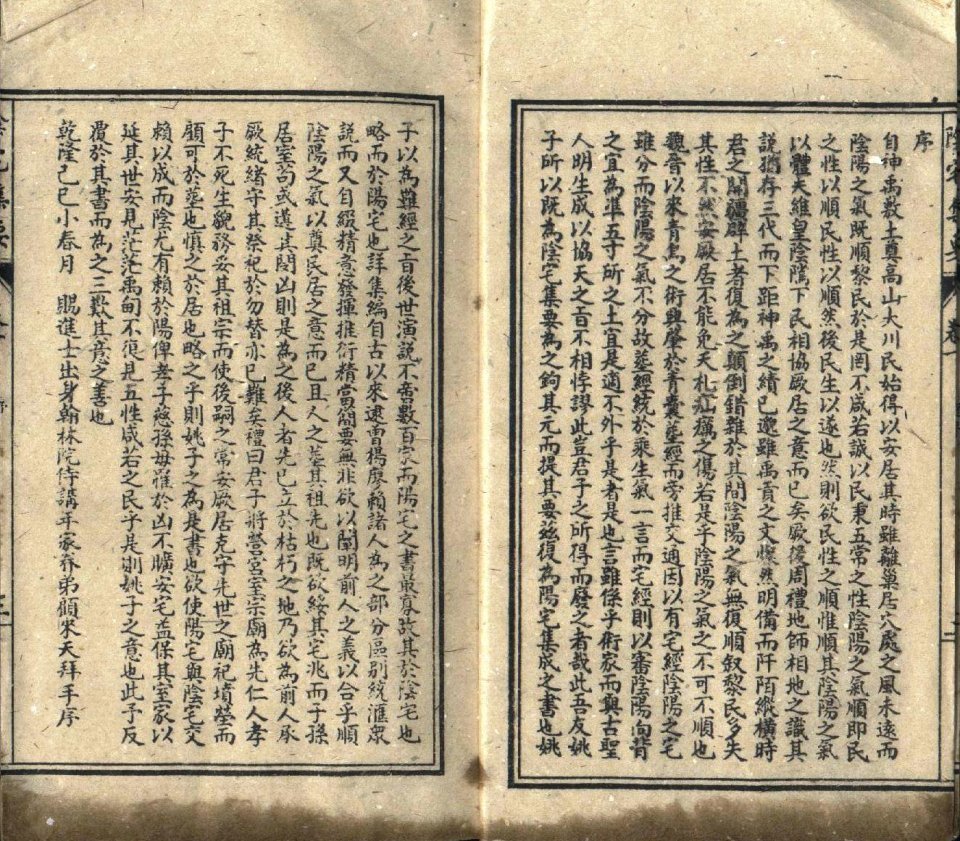 序
自神禹敷土奠高山大川民始得以安居其時雖離巢居穴處之風未遠而
陰陽之氣既順黎民於是罔不咸若誠以民秉五常之性陰陽之氣順即民
之性以順民性以順然後民生以遂也然則欲民性之順惟順其陰陽之氣
以體天維皇陰隲下民相協厥居之意而已矣厥後周禮地師相地之識其
說猶存三代而下距神禹之績已邈雖禹貢之文燦然明備而阡陌縱橫時
君之開疆辟土者復為之顛倒錯雜於其間陰陽之氣無復順敘黎民多失
其性不然安厥居不能免夭札疝癘之傷若是乎陰陽之氣之不可不順也
觀晉以來青烏之術興肇於青囊葬經而旁推交通因以有宅經陰陽之宅
雖分而陰陽之氣不分故葬經統於乘生氣一言而宅經則以審陰陽向背
之宜為準五寸所之土宜是適不外乎是者是也言雖係乎術家而與古聖
人明生成以協天之旨不相悖謬此豈君子之所得而廢之者哉此吾友姚
子所以既為陰宅集要為之鉤其元而提其要茲復為陽宅集成之書也姚
子以為雖經之旨後世演說不啻數百家而陽宅之書最寡故其於陰宅也
略而於陽宅也詳集編自古以來逮曾楊廖賴諸人為之部分區別統滙眾
說而又自綴精意發揮推衍精當簡要無非欲以闡明前人之義以合乎順
陰陽之氣以奠民居之意而已且人之葬其祖先也既欲綏其宅兆而子孫
居室苟或遘其閔凶則是為之後人者先已立於枯朽之地乃欲為前人承
厥統緒守其祭祀於勿替亦已難矣禮曰君子將營宮室宗廟為先仁人孝
子不死生貌務妥其祖宗而使後嗣之常安厥居克守先世之廟祀墳塋而
顧可於葬也慎之於居也略之乎則姚子之為是書也欲使陽宅與陰宅交
賴以成而陰尤有賴於陽俾孝子慈孫毋罹於凶不曠安宅益保其室家以
延其世安見茫茫禹甸不復見五性咸若之民乎是則姚子之意也此予反
覆於其書而為之三歎其意之善也
乾隆己巳小春月　賜進士出身翰林院侍講年家眷弟顧梁天拜手序